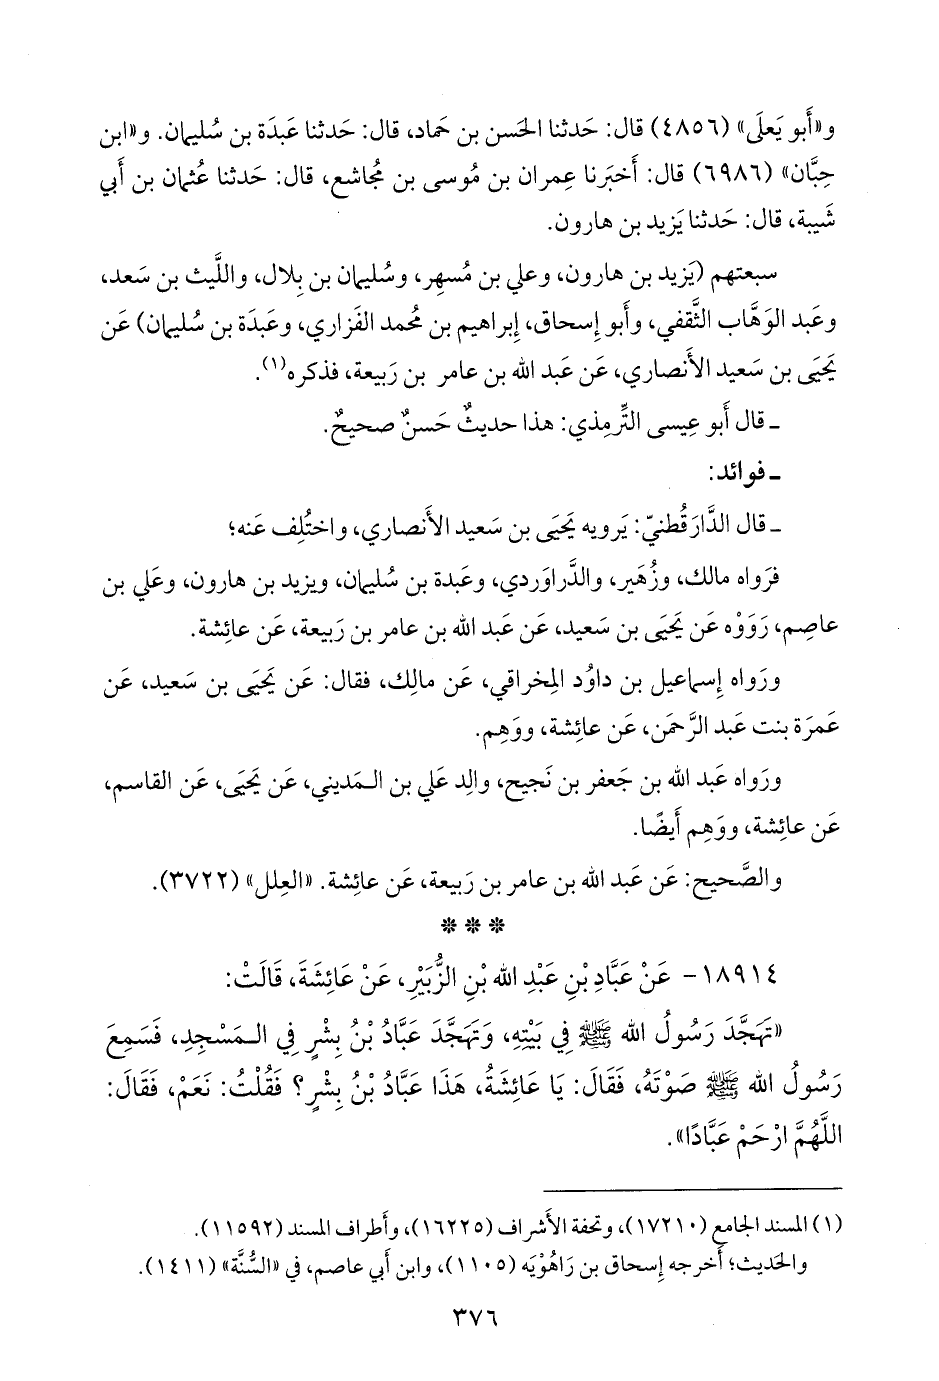 و«أَبو يَعلَى» (٤٨٥٦) قال: حَدثنا الحَسن بن حَماد، قال: حَدثنا عَبدَة بن سُليمان. و«ابن
حِبَّان» (٦٩٨٦) قال: أَخبَرنا عِمران بن مُوسى بن مُجاشع، قال: حَدثنا عُثمان بن أَبي
شَيبة، قال: حَدثنا يَزيد بن هارون.
سبعتهم (يَزيد بن هارون، وعلي بن مُسهِر، وسُليمان بن بِلال، والليث بن سَعد،
وعَبد الوَهَّاب الثَّقفي، وأَبو إِسحاق، إِبراهيم بن مُحمد الفَزاري، وعَبدَة بن سُليمان) عَن
يَحيَى بن سَعيد الأَنصاري، عَن عَبد الله بن عامر بن رَبيعة، فذكره(١).
ـ قال أَبو عِيسى التِّرمِذي: هذا حديثٌ حَسنٌ صحيحٌ.
ـ فوائد:
ـ قال الدَّارَقُطنيّ: يَرويه يَحيَى بن سَعيد الأَنصاري، واختُلِف عَنه؛
فرَواه مالك، وزُهَير، والدَّراوَردي، وعَبدة بن سُليمان، ويزيد بن هارون، وعَلي بن
عاصِم، رَوَوْه عَن يَحيَى بن سَعيد، عَن عَبد الله بن عامر بن رَبيعة، عَن عائِشة.
ورَواه إِسماعيل بن داوُد المِخراقي، عَن مالِك، فقال: عَن يَحيَى بن سَعيد، عَن
عَمرَة بنت عَبد الرَّحمَن، عَن عائِشة، ووَهِم.
ورَواه عَبد الله بن جَعفر بن نَجيح، والِد عَلي بن الـمَديني، عَن يَحيَى، عَن القاسم،
عَن عائِشة، ووَهِم أَيضًا.
والصَّحيح: عَن عَبد الله بن عامر بن رَبيعة، عَن عائِشة. «العِلل» (٣٧٢٢).
* * *
١٨٩١٤ - عَنْ عَبَّادِ بْنِ عَبْدِ الله بْنِ الزُّبَيْرِ، عَنْ عَائِشَةَ، قَالَتْ:
«تَهَجَّدَ رَسُولُ الله ﷺ فِي بَيْتِهِ، وَتَهَجَّدَ عَبَّادُ بْنُ بِشْرٍ فِي الـمَسْجِدِ، فَسَمِعَ
رَسُولُ الله ﷺ صَوْتَهُ، فَقَالَ: يَا عَائِشَةُ، هَذَا عَبَّادُ بْنُ بِشْرٍ؟ فَقُلْتُ: نَعَمْ، فَقَالَ:
اللَّهُمَّ ارْحَمْ عَبَّادًا».
(١) المسند الجامع (١٧٢١٠)، وتحفة الأَشراف (١٦٢٢٥)، وأَطراف المسند (١١٥٩٢).
والحَديث؛ أَخرجه إِسحاق بن رَاهُوْيَه (١١٠٥)، وابن أَبي عاصم، في «السُّنَّة» (١٤١١).
٣٧٦